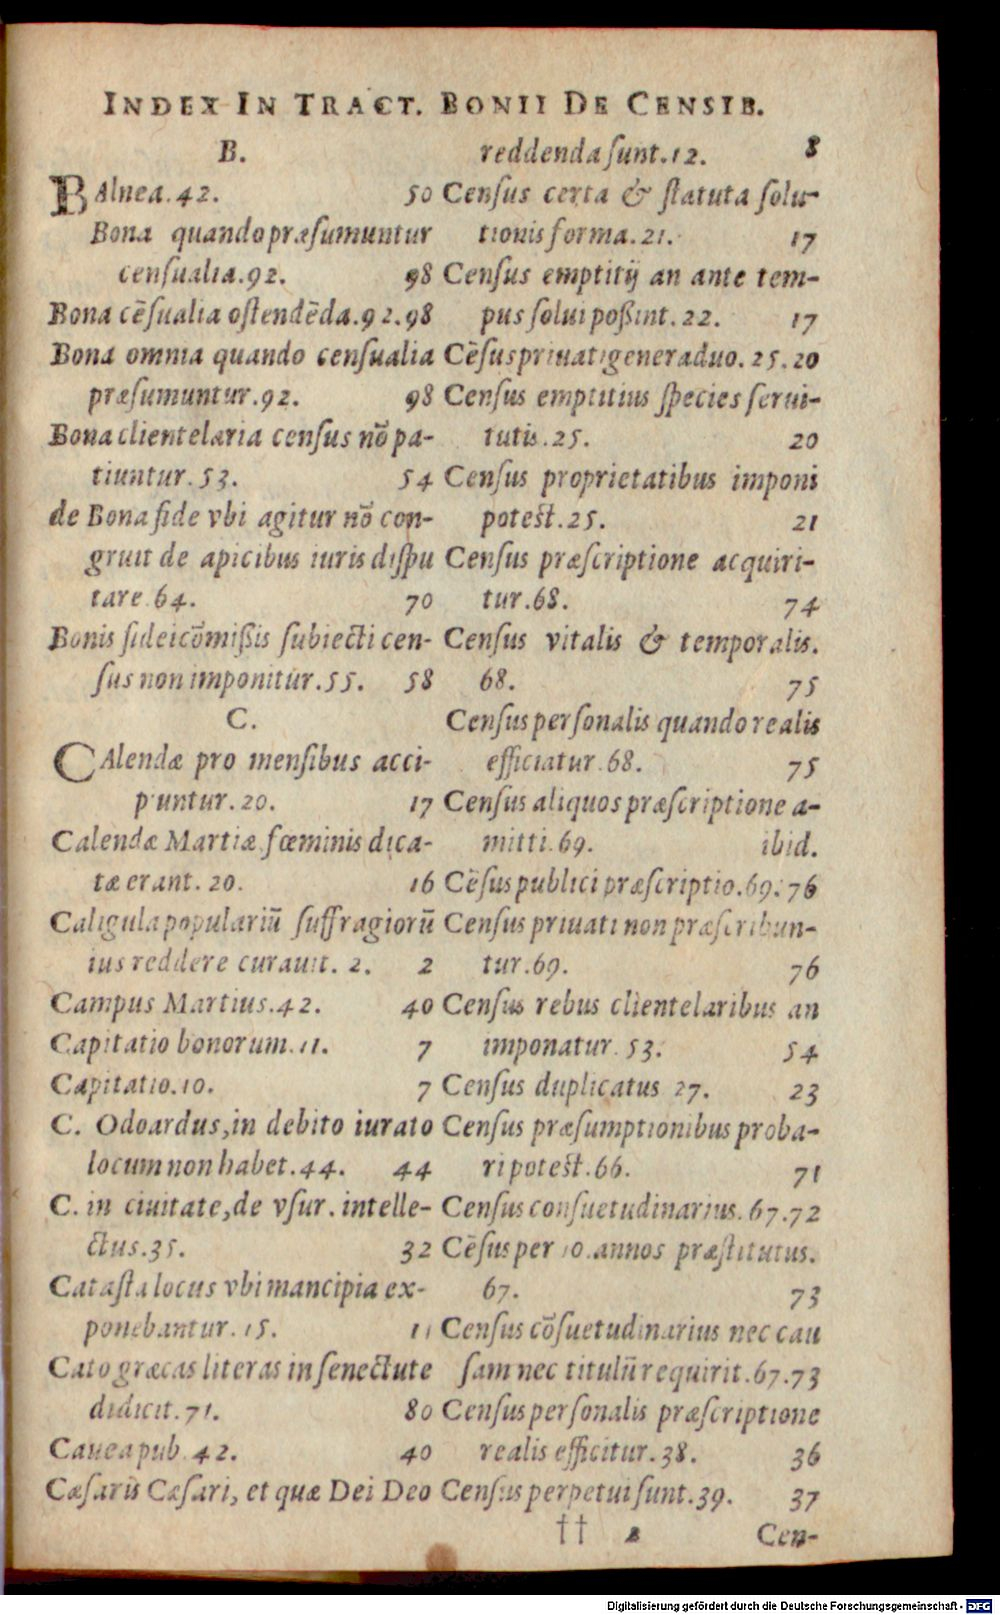 INDEX IN TRACT. BONII DE CENSIB.
B.
BAlnea. 42. 50
Bona quando præsumuntur
censualia. 92. 98
Bona cēsualia ostendēda. 92. 98
Bona omnia quando censualia
præsumuntur. 92. 98
Bona clientelaria census nō pa-
tiuntur. 53. 54
de Bona fide vbi agitur nō con-
gruit de apicibus iuris dispu
tare. 64. 70
Bonis fideicōmißis subiecti cen-
sus non imponitur. 55. 58
C.
CAlendæ pro mensibus acci-
puntur. 20. 17
Calendæ Martiæ fœminis dica-
tæ erant. 20. 16
Caligula populariū suffragiorū
ius reddere curauit. 2. 2
Campus Martius. 42. 40
Capitatio bonorum. 11. 7
Capitatio. 10. 7
C. Odoardus, in debito iurato
locum non habet. 44. 44
C. in ciuitate, de vsur. intelle-
ctus. 35. 32
Catasta locus vbi mancipia ex-
ponebantur. 15. 11
Cato græcas literas in senectute
didicit. 71. 80
Cauea pub. 42. 40
Cæsaris Cæsari, et quæ Dei Deo
reddenda sunt. 12. 8
Census certa & statuta solu-
tionis forma. 21. 17
Census emptitij an ante tem-
pus solui poßint. 22. 17
Cēsus priuati genera duo. 25. 20
Census emptitius species serui-
tutis. 25. 20
Census proprietatibus imponi
potest. 25. 21
Census præscriptione acquiri-
tur. 68. 74
Census vitalis & temporalis.
68. 75
Census personalis quando realis
efficiatur. 68. 75
Census aliquos præscriptione a-
mitti. 69. ibid.
Cēsus publici præscriptio. 69. 76
Census priuati non præscribun-
tur. 69. 76
Census rebus clientelaribus an
imponatur. 53. 54
Census duplicatus 27. 23
Census præsumptionibus proba-
ri potest. 66. 71
Census consuetudinarius. 67. 72
Cēsus per 10. annos præstitutus.
67. 73
Census cōsuetudinarius nec cau
sam nec titulū requirit. 67. 73
Census personalis præscriptione
realis efficitur. 38. 36
Census perpetui sunt. 39. 37
†† 2 Cen-
Digitalisierung gefördert durch die Deutsche Forschungsgemeinschaft - DFG